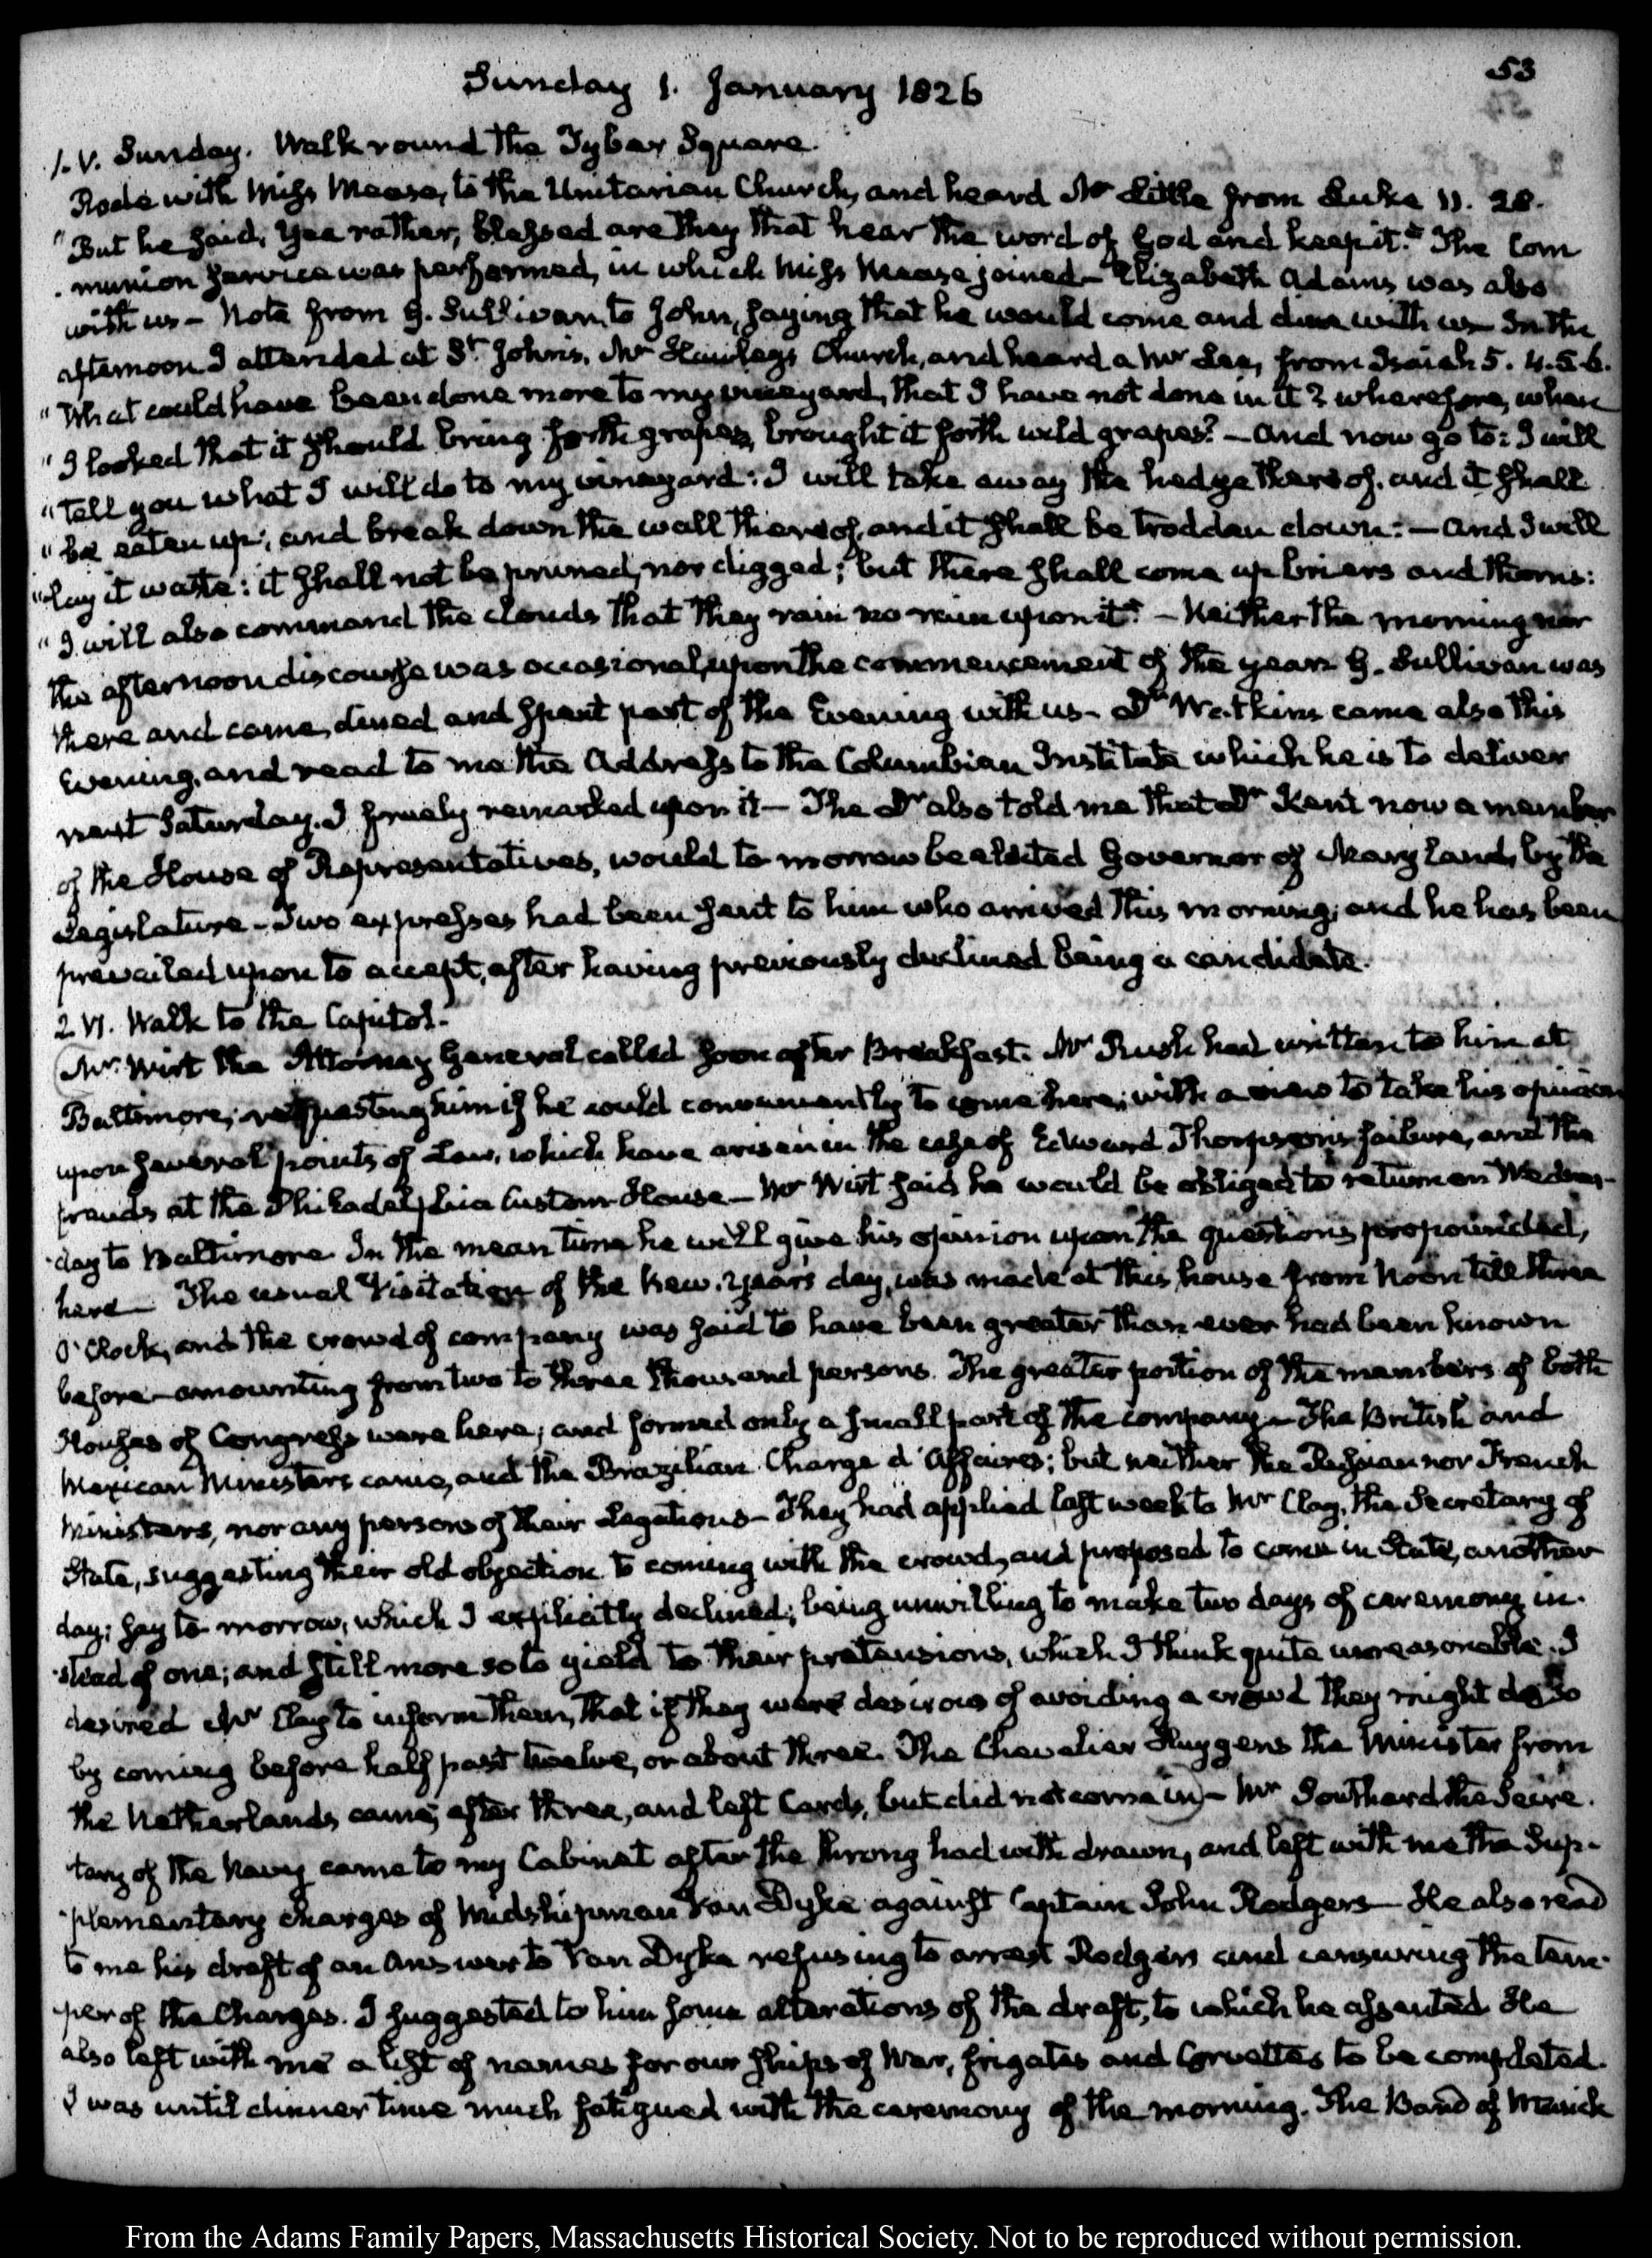 53
Sunday 1. January 1826
1. V. Sunday. Walk round the Tyber Square.
Rode with Miss Mease, to the Unitarian Church, and heard Mr Little from Luke 11. 28.
"But he said, Yea rather, blessed are they that hear the word of God and keep it." The Com
munion service was performed, in which Miss Mease joined— Elizabeth Adams was also
with us— Note from G. Sullivan, to John, saying that he would come and dine with us— In the
afternoon I attended at St. John's, Mr Hawley's Church, and heard a Mr Lee, from Isaiah 5. 4.5.6.
"What could have been done more to my vineyard, that I have not done in it? wherefore, when
"I looked that it should bring forth grapes, brought it forth wild grapes?— And now go to: I will
"tell you what I will do to my vineyard: I will take away the hedge thereof, and it shall
"be eaten up; and break down the wall thereof, and it shall be trodden down:— And I will
"lay it waste: it shall not be pruned, nor digged; but there shall come up briers and thorns:
"I will also command the clouds that they rain no rain upon it."— Neither the morning nor
the afternoon discourse was occasional, upon the commencement of the year— G. Sullivan was
there and came, dined and spent part of the Evening with us— Dr Watkins came also this
Evening, and read to me the Address to the Columbian Institute which he is to deliver
next Saturday. I freely remarked upon it— The Dr also told me that Dr Kent now a member
of the House of Representatives, would to morrow be elected Governor of Maryland, by the
Legislature— Two expresses had been sent to him who arrived this morning; and he has been
prevailed upon to accept, after having previously declined being a candidate.
2. VI. Walk to the Capitol.
Mr Wirt the Attorney General called soon after Breakfast. Mr Rush had written to him at
Baltimore; requesting him if he could conveniently to come here; with a view to take his opinion
upon several points of Law, which have arisen in the case of Edward Thompson's failure, and the
frauds at the Philadelphia Custom House— Mr Wirt said he would be obliged to return on Wednes-
day to Baltimore. In the mean time he will give his opinion upon the questions propounded,
here— The usual Visitation of the New-Year's day, was made at this house from Noon till three
O'Clock, and the crowd of company was said to have been greater than ever had been known
before— amounting from two to three thousand persons. The greater portion of the members of both
Houses of Congress were here; and formed only a small part of the company— The British and
Mexican Ministers came, and the Brazilian Chargé d'Affaires; but neither the Russian nor French
Ministers, nor any persons of their Legations— They had applied last week to Mr Clay, the Secretary of
State, suggesting their old objection to coming with the crowd, and proposed to come in State, another
day; say to-morrow, which I explicitly declined; being unwilling to make two days of ceremony in-
stead of one; and still more so to yield to their pretensions, which I think quite unreasonable. I
desired Mr Clay to inform them, that if they were desirous of avoiding a crowd they might do so
by coming before half past twelve, or about three. The Chevalier Huygens the Minister from
the Netherlands came, after three, and left Cards, but did not come in)— Mr Southard the Secre-
tary of the Navy came to my Cabinet after the throng had withdrawn, and left with me the Sup-
plementary charges of Midshipman Van Dyke against Captain John Rodgers— He also read
to me his draft of an Answer to Van Dyke refusing to arrest Rodgers and censuring the tem-
per of the Charges. I suggested to him some alterations of the draft, to which he assented. He
also left with me a list of names for our ships of War, frigates and Corvettes to be completed.
I was until dinner time much fatigued with the ceremony of the morning. The Band of Musick
From the Adams Family Papers, Massachusetts Historical Society. Not to be reproduced without permission.